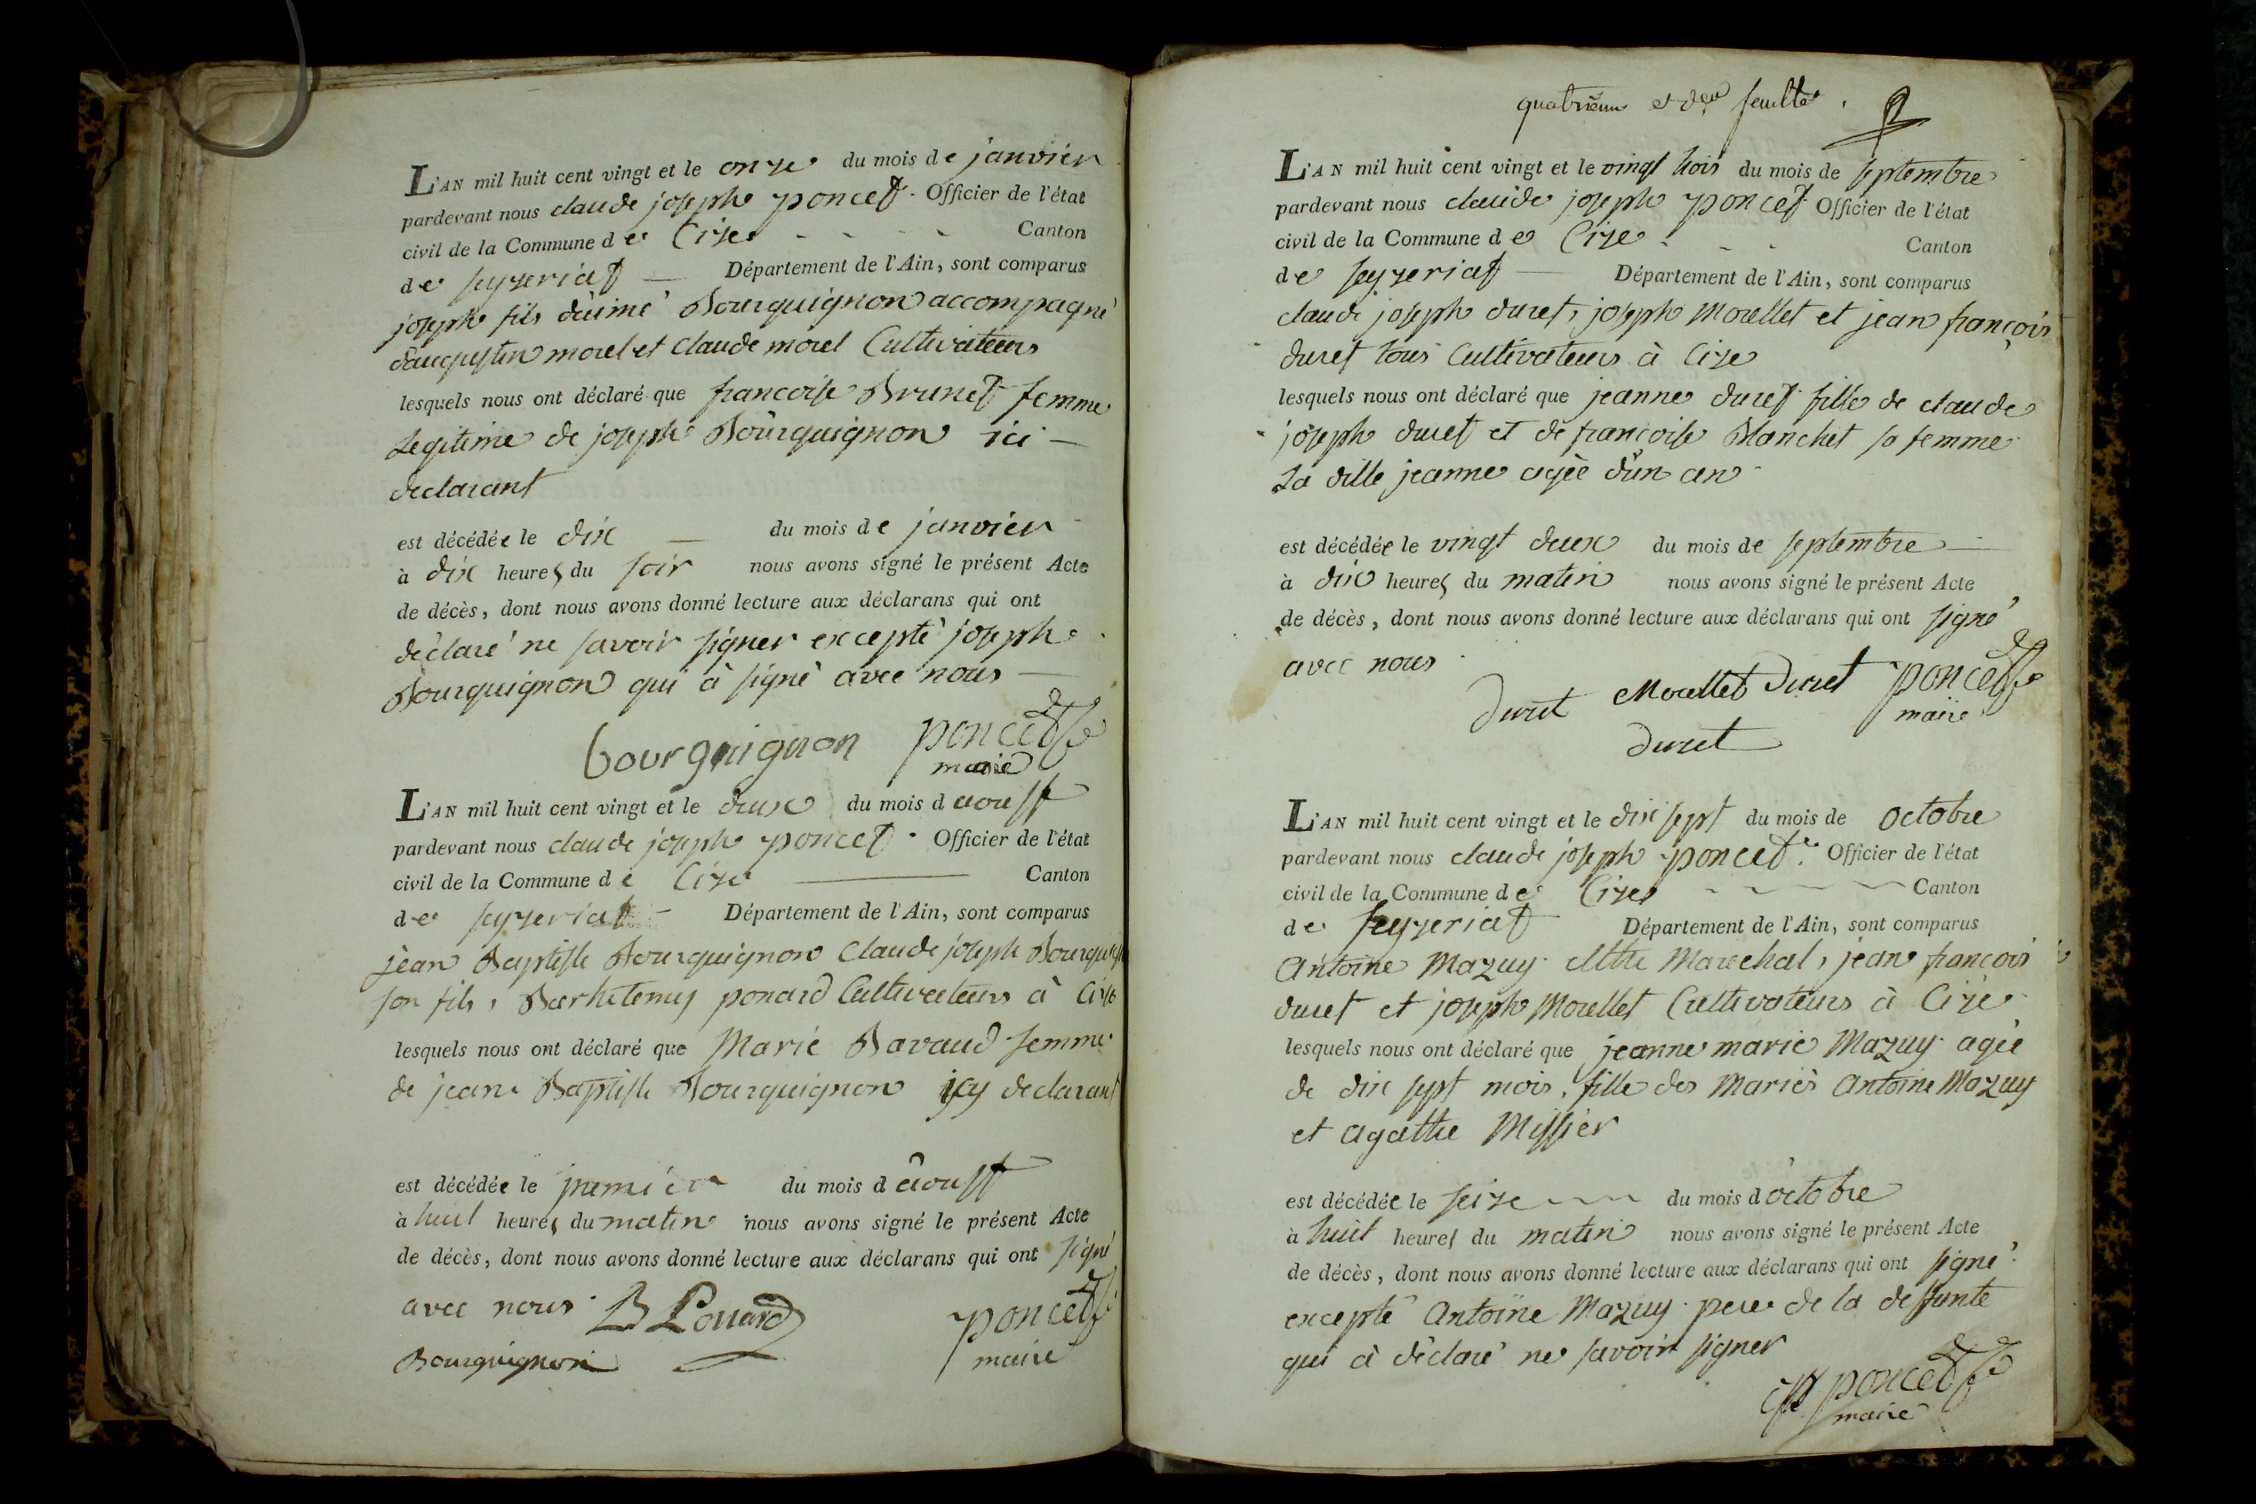 L'AN mil huit cent vingt et le onze du mois de janvier
pardevant nous claude joseph poncet Officier de l'état
civil de la Commune de Cize - - - - Canton
de seyzeriat — Département de l'Ain, sont comparus
joseph fils d'aimé Bourguignon accompagné
d'augustin morel et claude morel Cultivateurs
lesquels nous ont déclaré que francoise Brunet femme
Legitime de joseph Bourguignon ici —
declarant
est décédée le dix — du mois de janvier
à dix heures du soir nous avons signé le présent Acte
de décès, dont nous avons donné lecture aux déclarans qui ont
déclaré ne savoir signer excepté joseph
Bourguignon qui à signé avec nous —
bourguignon poncet
maire
L'AN mil huit cent vingt et le deux du mois d aoust
pardevant nous claude joseph poncet Officier de l'état
civil de la Commune de Cize — Canton
de seyzeriat — Département de l'Ain, sont comparus
jean Baptiste Bourguignon Claude joseph
son fils, Barthelemy ponard Cultivateurs à Cize
lesquels nous ont déclaré que Marie Bavaud femme
de jean Baptiste Bourguignon icy declarant
est décédée le premier du mois d aoust
à huit heures du matin nous avons signé le présent Acte
de décès, dont nous avons donné lecture aux déclarans qui ont signé
avec nous B Ponard poncet
Bourguignon maire
quatrieme et feuille.
L'AN mil huit cent vingt et le vingt trois du mois de septembre
pardevant nous claude joseph poncet Officier de l'état
civil de la Commune de Cize - - - Canton
de seyzeriat — Département de l'Ain, sont comparus
claude joseph duret, joseph Morellet et jean françois
duret tous Cultivateurs à Cize
lesquels nous ont déclaré que jeanne duret fille de claude
joseph duret et de francoise Blanchet sa femme
La ditte jeanne agée d'un an
est décédée le vingt deux du mois de septembre —
à dix heures du matin nous avons signé le présent Acte
de décès, dont nous avons donné lecture aux déclarans qui ont signé
avec nous
duret Morellet Duret poncet
maire
duret
L'AN mil huit cent vingt et le dix sept du mois de octobre
pardevant nous claude joseph poncet Officier de l'état
civil de la Commune de Cize Canton
de seyzeriat — Département de l'Ain, sont comparus
Antoine Mazuy Mtre Marechal, jean françois
duret et joseph Morellet Cultivateurs à Cize
lesquels nous ont déclaré que jeanne marie Mazuy agée
de dix sept mois, fille des Mariés Antoine Mazuy
et agathe Missier
est décédée le seize du mois d octobre
à huit heures du matin nous avons signé le présent Acte
de décès, dont nous avons donné lecture aux déclarans qui ont signé
excepté Antoine Mazuy pere de la deffunte
qui à déclaré ne savoir signer
poncet
maire